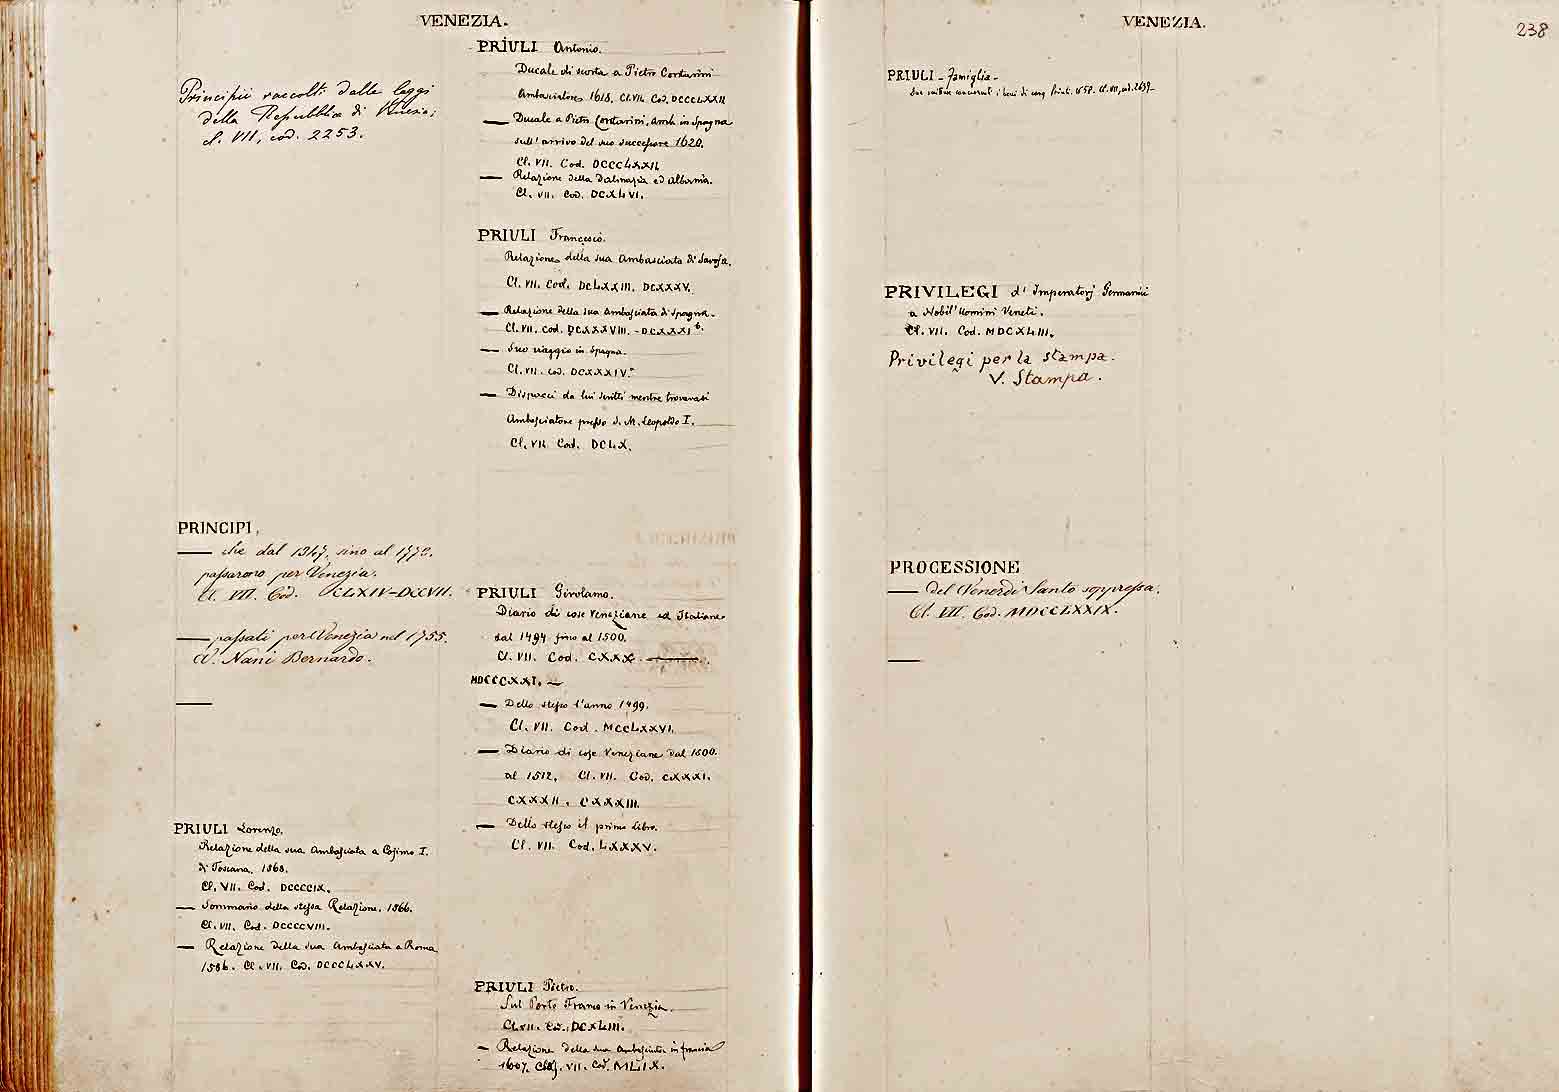 VENEZIA.
Principii raccolti dalle leggi
della Repubblica di Venezia;
cl. VII, cod. 2253.
PRINCIPI,
— che dal 1347, sino al 1770.
passarono per Venezia.
Cl. VII. Cod. CLXIV-DCCVII.
— passati per Venezia nel 1755.
V. Nani Bernardo.
—
PRIULI Lorenzo.
Relazione della sua Ambasciata a Cosimo I.
di Toscana, 1565.
Cl. VII. Cod. DCCCCIX.
— Sommario della stessa Relazione, 1566.
Cl. VII. Cod. DCCCCVIII.
— Relazione della sua Ambasciata a Roma
1586. Cl. VII. Cod. DCCCLXXV.
PRIULI Antonio.
Ducale di scorta a Pietro Contarini
Ambasciatore 1618. Cl. VII. Cod. DCCCLXXII
— Ducale a Pietro Contarini, Amb. in Spagna
sull'arrivo del suo successore 1620.
Cl. VII. Cod. DCCCLXXII.
— Relazione della Dalmazia ed Albania.
Cl. VII. Cod. DCXLVI.
PRIULI Francesco.
Relazione della sua Ambasciata di Savoja.
Cl. VII. Cod. DCLXXIII. DCXXXV.
— Relazione della sua Ambasciata di Spagna.
Cl. VII. Cod. DCXXXVIII. - DCXXXI b.
— Suo viaggio in Spagna.
Cl. VII. Cod. DCXXXIV.
— Dispacci da lui scritti mentre trovavasi
Ambasciatore presso S. M. Leopoldo I.
Cl. VII. Cod. DCLX.
PRIULI Girolamo.
Diario di cose Veneziane ed Italiane
dal 1494 fino al 1500.
Cl. VII. Cod. CXXX.
MDCCCXXI. —
— Dello stesso l'anno 1499.
Cl. VII. Cod. MCCLXXVI.
— Diario di cose Veneziane dal 1500.
al 1512, Cl. VII. Cod. CXXXI.
CXXXII. CXXXIII.
— Dello stesso il primo Libro.
Cl. VII. Cod. LXXXV.
PRIULI Pietro.
Sul Porto Franco in Venezia.
Cl. VII. Cod. DCXLIII.
— Relazione della sua Ambasciata in francia
1607. Clas. VII. Cod. MLIX.
VENEZIA.
238
PRIULI - famiglia -
Due concernenti i beni di Priuli. Cl. VII, cod. 2637-
PRIVILEGI d' Imperatorj Germanici
a Nobil' Uomini Veneti.
Cl. VII. Cod. MDCXLIII.
Privilegi per la stampa.
V. Stampa.
PROCESSIONE
— del Venerdì Santo soppressa.
Cl. VII. Cod. MDCCLXXIX.
—